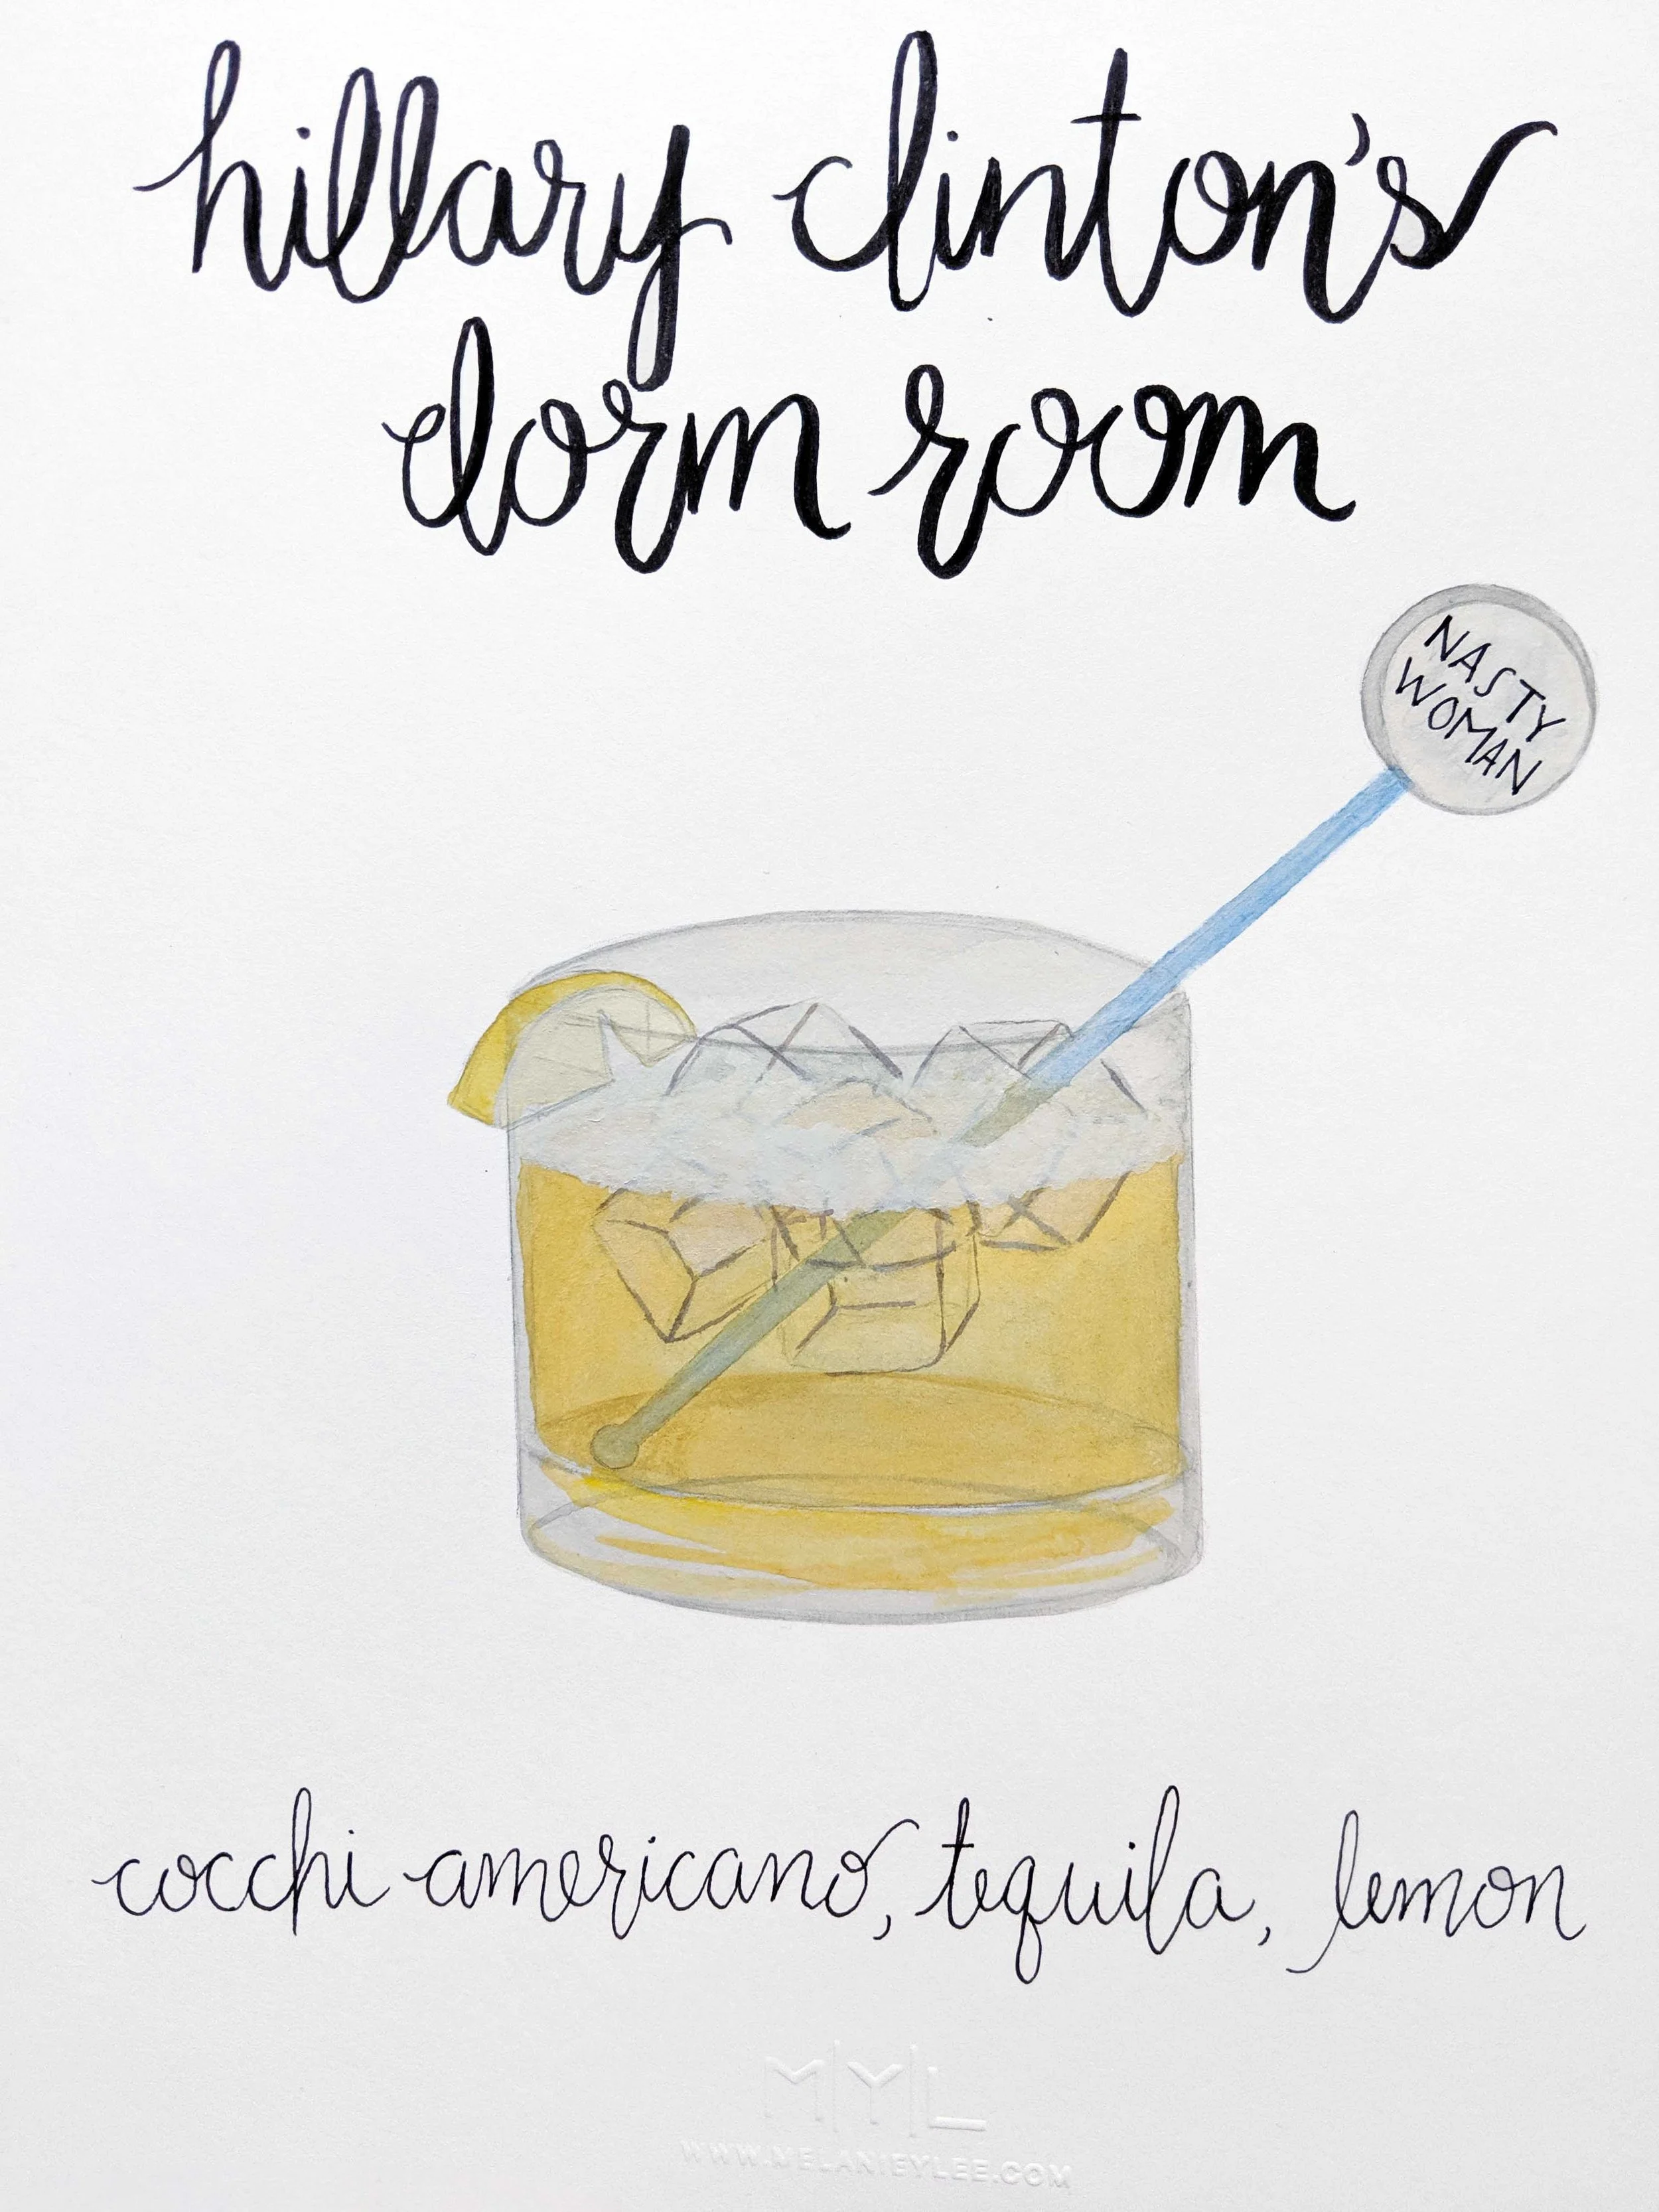 hillary clinton's
dorm room
NASTY
WOMAN
cocchi americano, tequila, lemon
M|Y|L
WWW.MELANIEYLEE.COM